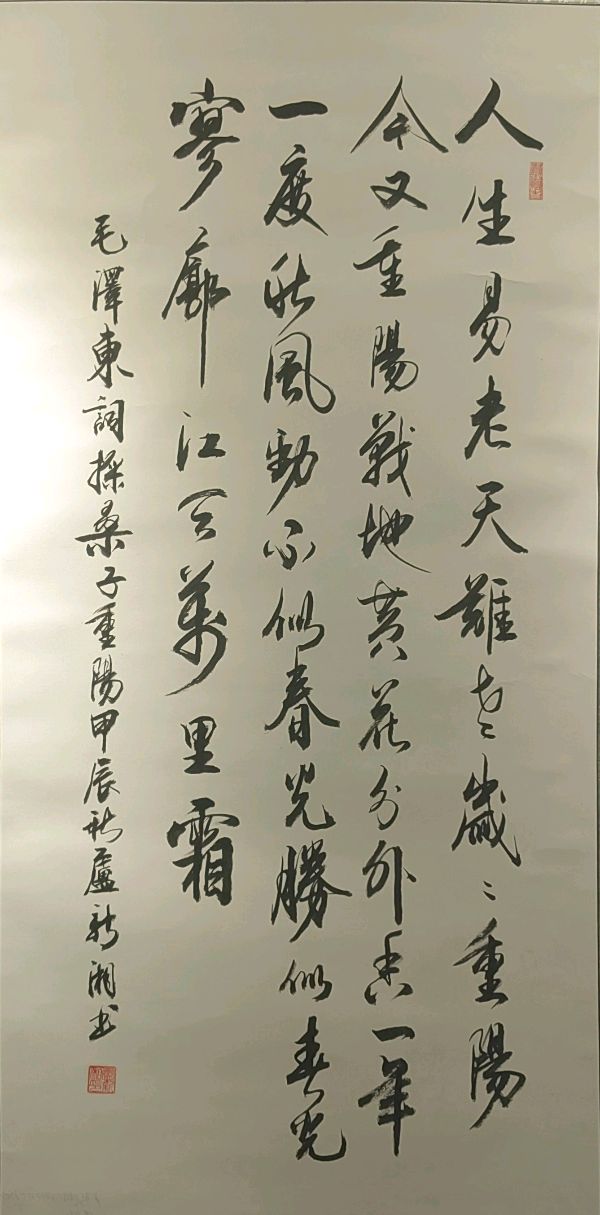 人生易老天難老歲〻重陽
今又重陽戰地黄花分外香一年
一度秋風勁不似春光勝似春光
寥廓江天萬里霜
毛澤東詞採桑子重陽甲辰秋盧新湘書